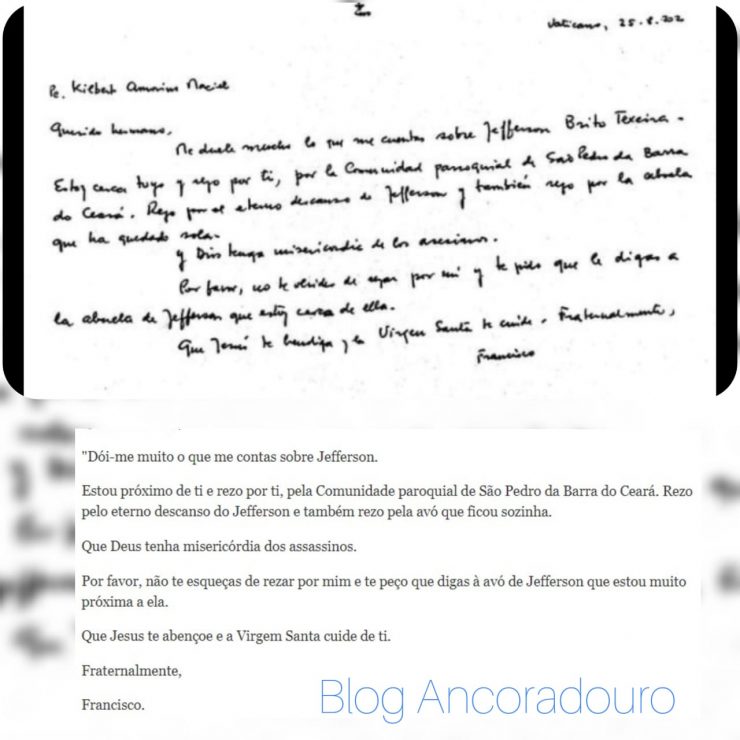 Vaticano, 25.8.202
Pe. Kilbert Amorim Maciel
Querido hermano,
Me duele mucho lo que me cuentas sobre Jefferson Brito Texeira.
Estoy cerca tuyo y rezo por ti, por la Comunidad parroquial de São Pedro da Barra
do Ceará. Rezo por el eterno descanso de Jefferson y también rezo por la abuela
que ha quedado sola.
y Dios tenga misericordia de los asesinos.
Por favor, no te olvides de rezar por mi y te pido que le digas a
la abuela de Jefferson que estoy cerca de ella.
Que Jesús te bendiga y la Virgen Santa te cuide. Fraternalmente,
Francisco
"Dói-me muito o que me contas sobre Jefferson.
Estou próximo de ti e rezo por ti, pela Comunidade paroquial de São Pedro da Barra do Ceará. Rezo
pelo eterno descanso do Jefferson e também rezo pela avó que ficou sozinha.
Que Deus tenha misericórdia dos assassinos.
Por favor, não te esqueças de rezar por mim e te peço que digas à avó de Jefferson que estou muito
próxima a ela.
Que Jesus te abençoe e a Virgem Santa cuide de ti.
Fraternalmente,
Francisco.
Blog Ancoradouro